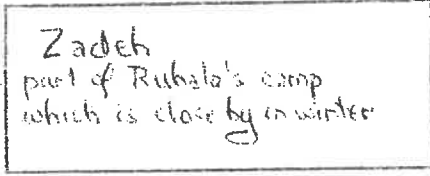 Zadeh
part of Ruhala's camp
which is close by in winter